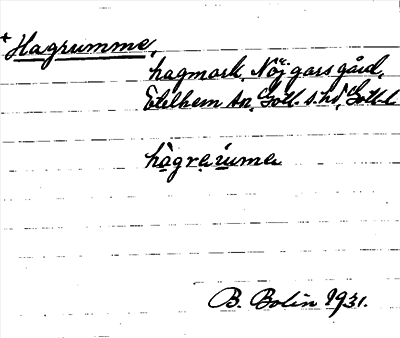 + Hagrumme,
hagmark, Nöjgars gård,
Etelhem sn, Gotl. s. hd, Gotl. l.
hagreruma
B. Bolin 1931.